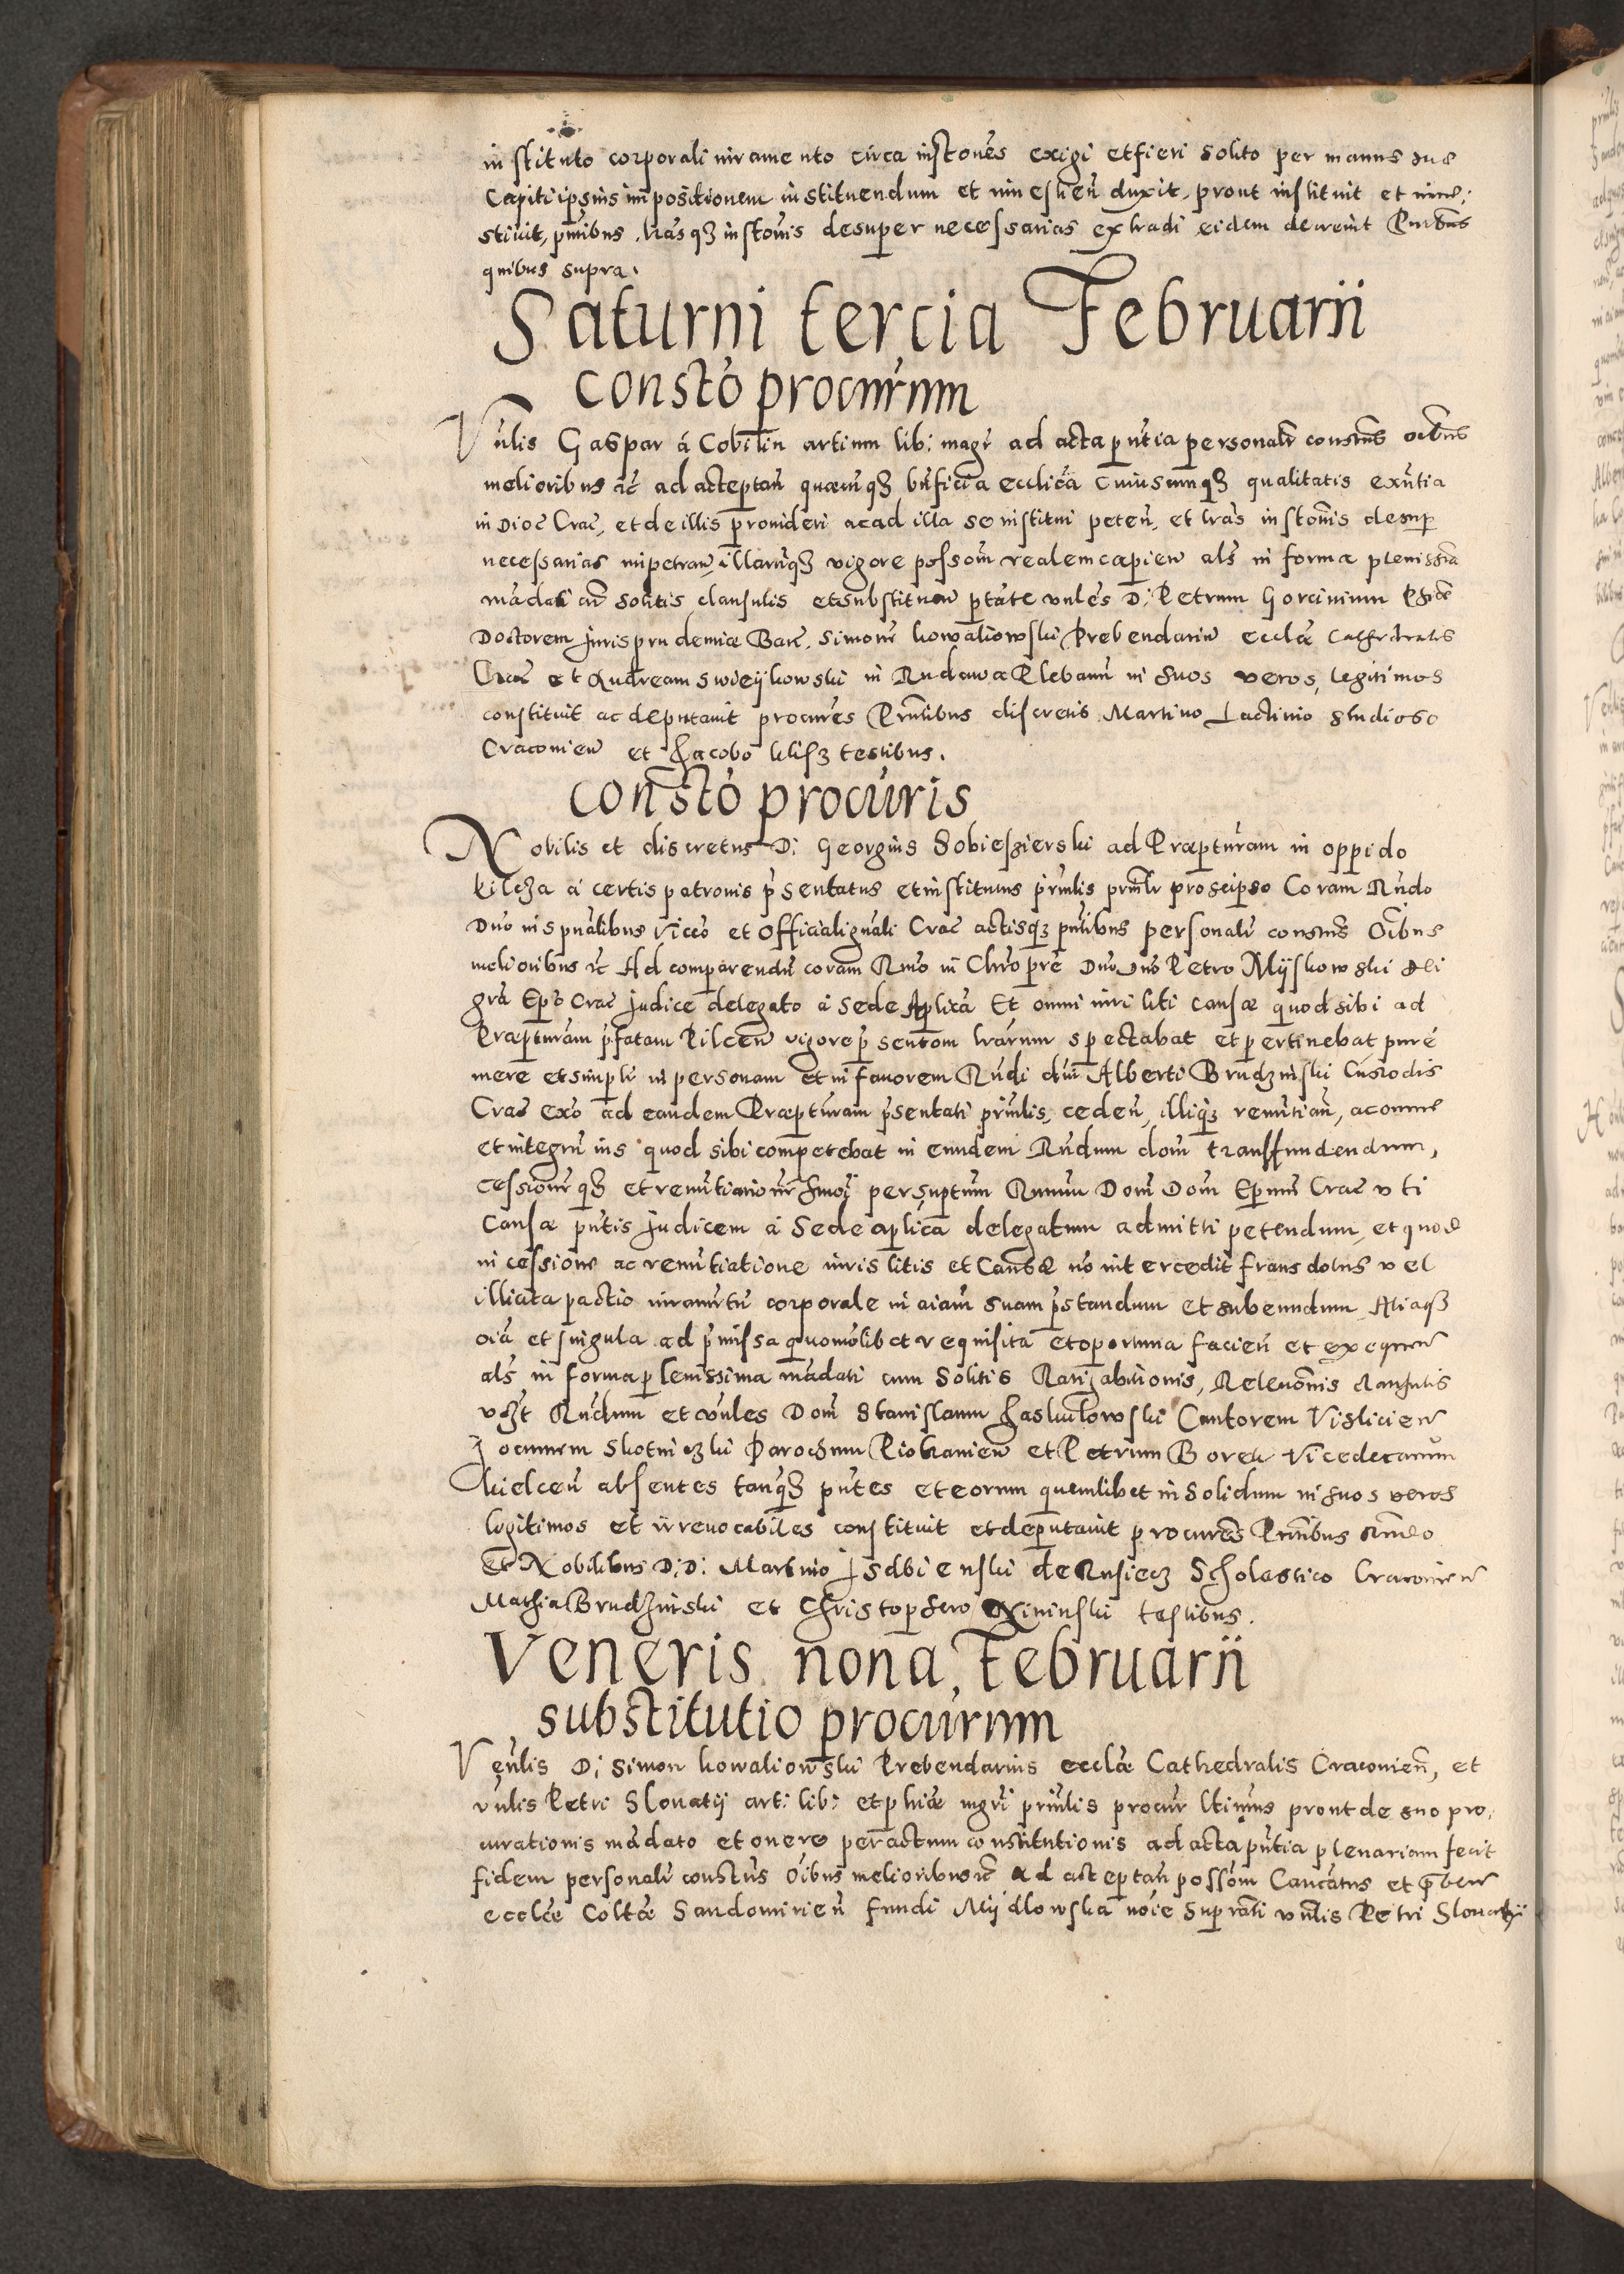 instituto corporali iuramento circa instones exigi et fieri solito per manus sue
Capiti ipsius impositionem instituendum et inuestien duxit, prout instituit et inue:
stiuit, pntibus, lras qȝ instonis desuper necessarias extradi eidem decreuit Pntibus
quibus supra.
Saturni tercia Februarii
Consto procurum
Vnlis Gaspar á Cobilin artium lib: magr ad acta pntia personalr constns oibus
melioribus rc ad acceptan quaecunqȝ bnficia ecclica cuiuscunqȝ qualitatis exntia
in Dioc Crac, et de illis prouideri ac ad illa se institui peten, et lras instonis desup
necessarias impetran, illarumqȝ vigore possom realem capien als in forma plenissima
mandati cum solitis clausulis et substituen ptate vnles D: Petrum Gorcinium
Doctorem Jurisprudentiae Bacc. Simone kowaliowski Prebendariu ecclae Cathedralis
Crac et Andream Swieijkowski in Rudawa Plebanu in suos veros, legitimos
constituit ac deputauit procures Pntibus discretis Martino Lactinio studioso
Cracouien et Jacobo testibus.
Consto procuris
Nobilis et discretus D: Georgius Sobieszierski ad Praeptüram in oppido
kilcza á certis patronis psentatus et institutus prinlis prinlr pro seipso Coram Rndo
Dno in spualibus Vico et Officiali gnali Crac actisqȝ pntibus personalr constns Oibus
melioribus rc Ad comparendu coram Rmo in Chro pre Dno Dno Petro Myskowski dei
gra Epo Crac Judice delegato á Sede Aplica Et omni iuri liti causae quod sibi ad
Praepturam pfatam Pilcen vigore psentom lrarum spectabat et pertinebat pure
mere et simplr in personam et in fauorem Rndi dni Alberti Brudzinski Custodis
Crac exo ad eandem Praepturam psentati prinlis, ceden, illiqȝ renuntian, ac omne
et integru ius quod sibi competebat in eundem Rndum dom transfundendum,
cessione qȝ et renuntiatione hmoi per suptum Rmum Dom Dom Epum Crac vti
Causae pntis Judicem á Sede aplica delegatum admitti petendum, et quod
in cessione ac renuntiatione iuris litis et Causae no intercedit fraus dolus vel
illicita pactio iuramtu corporale in aiam suam pstandum et subeundum Aliaqȝ
oia et singula ad pmissa quomolibet requisita et oportuna facien et exequen
als in forma plenissima mandati cum Solitis Ratihabitionis, Releuonis clausulis
vȝt Rndum et vnles Dom Stanislaum Haskulowski Cantorem Vislicien
Joannem Skotniczki Parochum Piotranien et Petrum Borek Vicedecanum
kielcen absentes tanqȝ pntes et eorum quemlibet in Solidum in suos veros
legitimos et irreuocabiles constituit et deputauit procures Pntibus Rndo
Et Nobilibus D: D: Martino Isdbienski de Rusiecz Scholastico Cracouien
Mathia Brudzinski et Christophero testibus.
Veneris nona Februarii
Substitutio procurum
Venlis D: Simon kowaliowski Prebendarius ecclae Cathedralis Cracouien, et
vnlis Petri Slouatij arti: lib: et phiae mgri prinlis procur ltimus prout de suo pro:
curationis mandato et onere per actum constitutionis ad acta pntia plenariam fecit
fidem personalr constns Oibus melioribus rc ad acceptan possom Canctus et pben
ecclae Coltae Sandomirien fundi Mijdlowska noie suprati vnlis Petri Slouatij